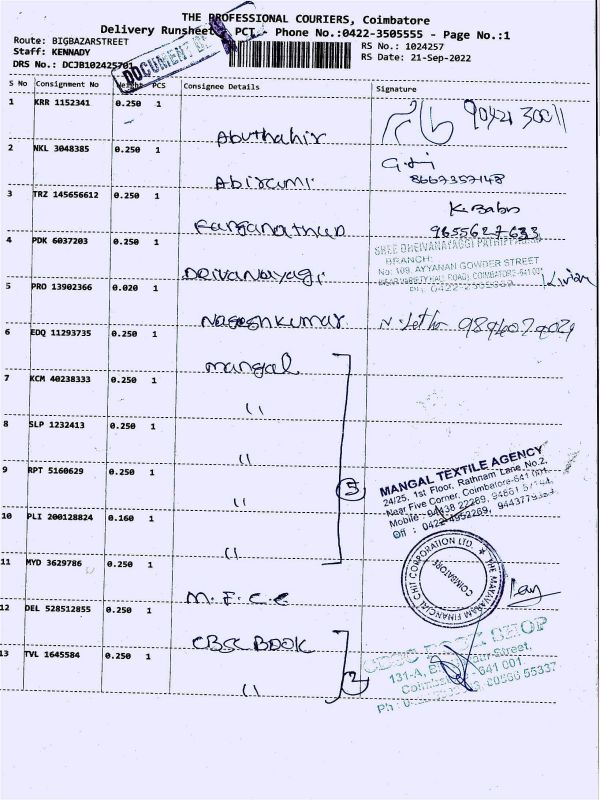 THE PROFESSIONAL COURIERS, Coimbatore
Delivery Runsheet PCT - Phone No.:0422-3505555 - Page No.:1
Route: BIGBAZARSTREET
RS No.: 1024257
Staff: KENNADY
RS Date: 21-Sep-2022
DRS No.: DCJB102425701
DOCUMENT
S No Consignment No Weight PCS Consignee Details Signature
1 KRR 1152341 0.250 1 Abuthahir
2 NKL 3048385 0.250 1 Abirami 8667357148
3 TRZ 145656612 0.250 1 K. Babu
9655627633
4 PDK 6037203 0.250 1 Deivanayagi
SHREE DHEIVANAYAGGI
BRANCH:
No: 109, AYYANAN GOWDER STREET
COIMBATORE-641 001
5 PRO 13902366 0.020 1 Nageshkumar
6 EDQ 11293735 0.250 1 mangal
7 KCM 40238333 0.250 1 "
8 SLP 1232413 0.250 1 "
9 RPT 5160629 0.250 1 "
5
MANGAL TEXTILE AGENCY
24/25, 1st Floor, Rathnam Lane No.2,
Near Five Corner, Coimbatore-641 001.
Mobile : 94438 22269,
Off : 0422-4952269,
10 PLI 200128824 0.160 1 "
11 MYD 3629786 0.250 1 M.F.C.C
THE MAYAVARAM FINANCIAL CHIT CORPORATION LTD.
COIMBATORE
12 DEL 528512855 0.250 1 CBSC BOOK
13 TVL 1645584 0.250 1 "
2
CBSC BOOK SHOP
131-A, Street,
Coimbatore 641 001
Ph : 80566 55337